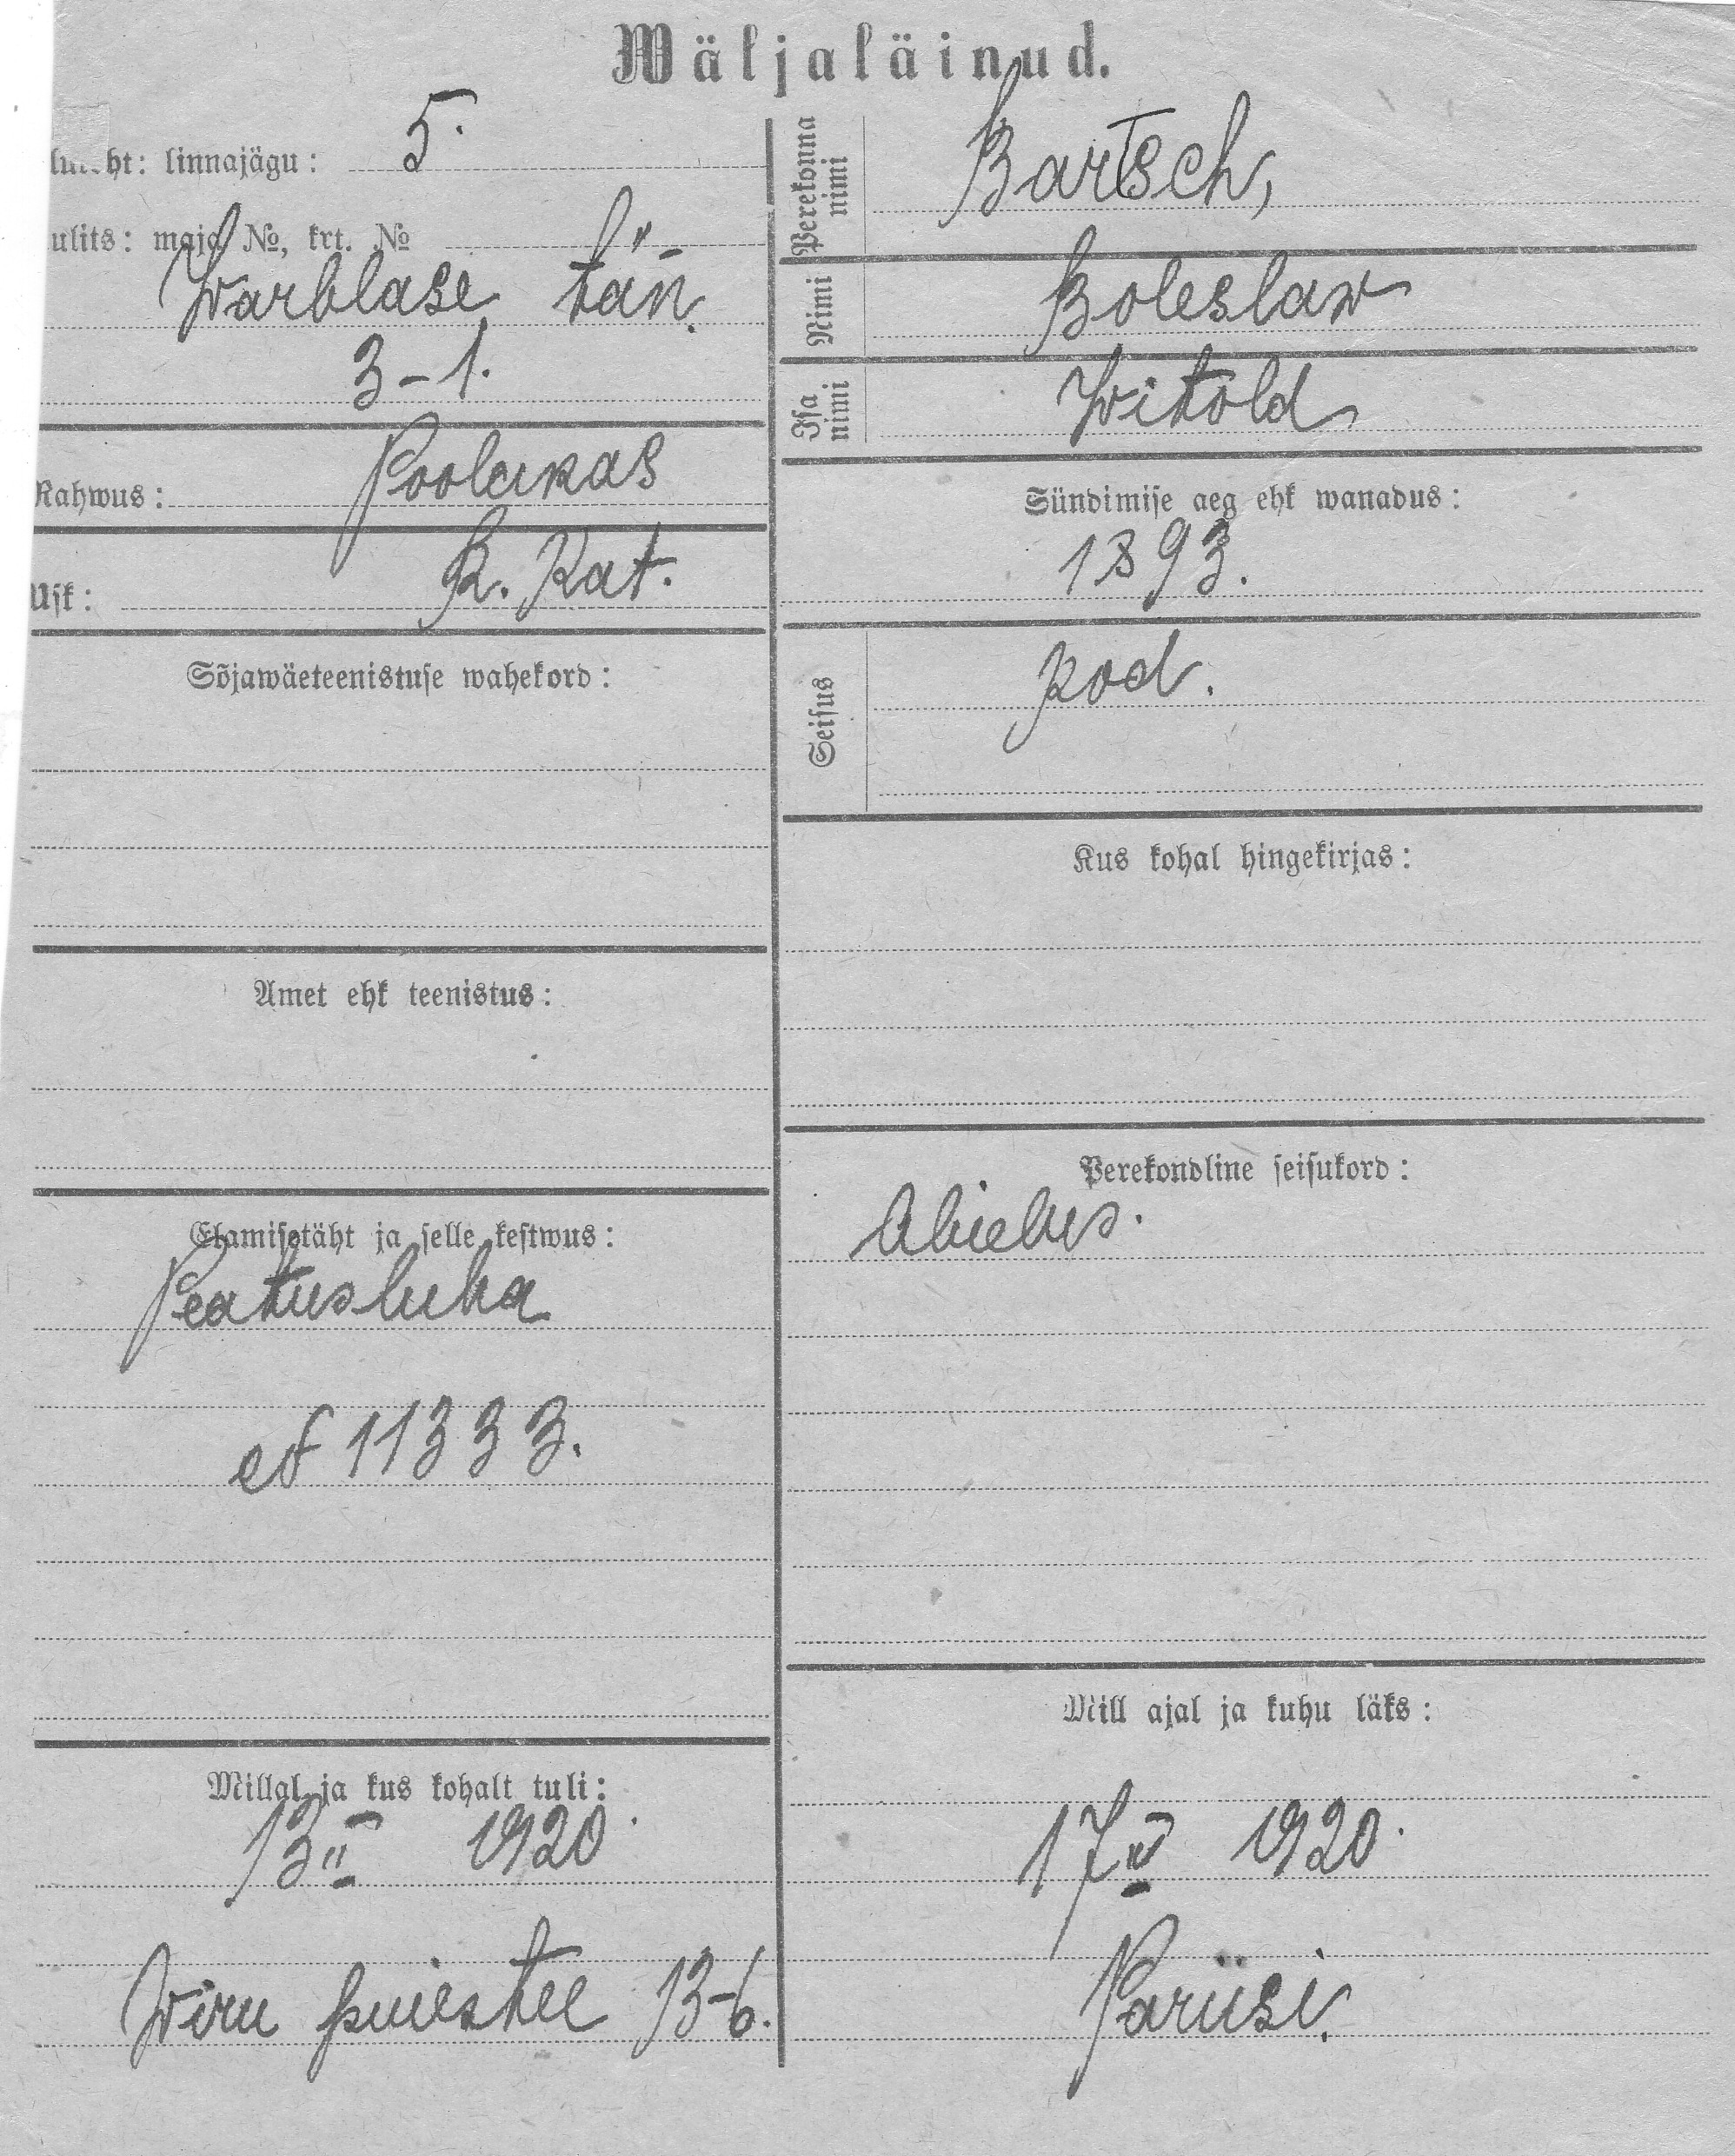 Wäljaläinud.
ht: linnajägu: 5.
ulits: maja №, krt. №
Warblase tän.
3-1.
Rahwus: Poolakas
Usk: R. Kat.
Sõjawäeteenistuse wahekord:
Amet ehk teenistus:
Elamisetäht ja selle kestwus:
Peatusluba
№ 11333.
Millal ja kus kohalt tuli:
13 II 1920.
Wiru puiestee 13-6.
Perekonna nimi
Bartsch,
Nimi
Boleslaw
Isa nimi
Witold
Sündimise aeg ehk wanadus:
1893.
Seisus
kod.
Kus kohal hingekirjas:
Perekondline seisukord:
Abielus.
Mill ajal ja kuhu läks:
17 V 1920.
Pariisi.